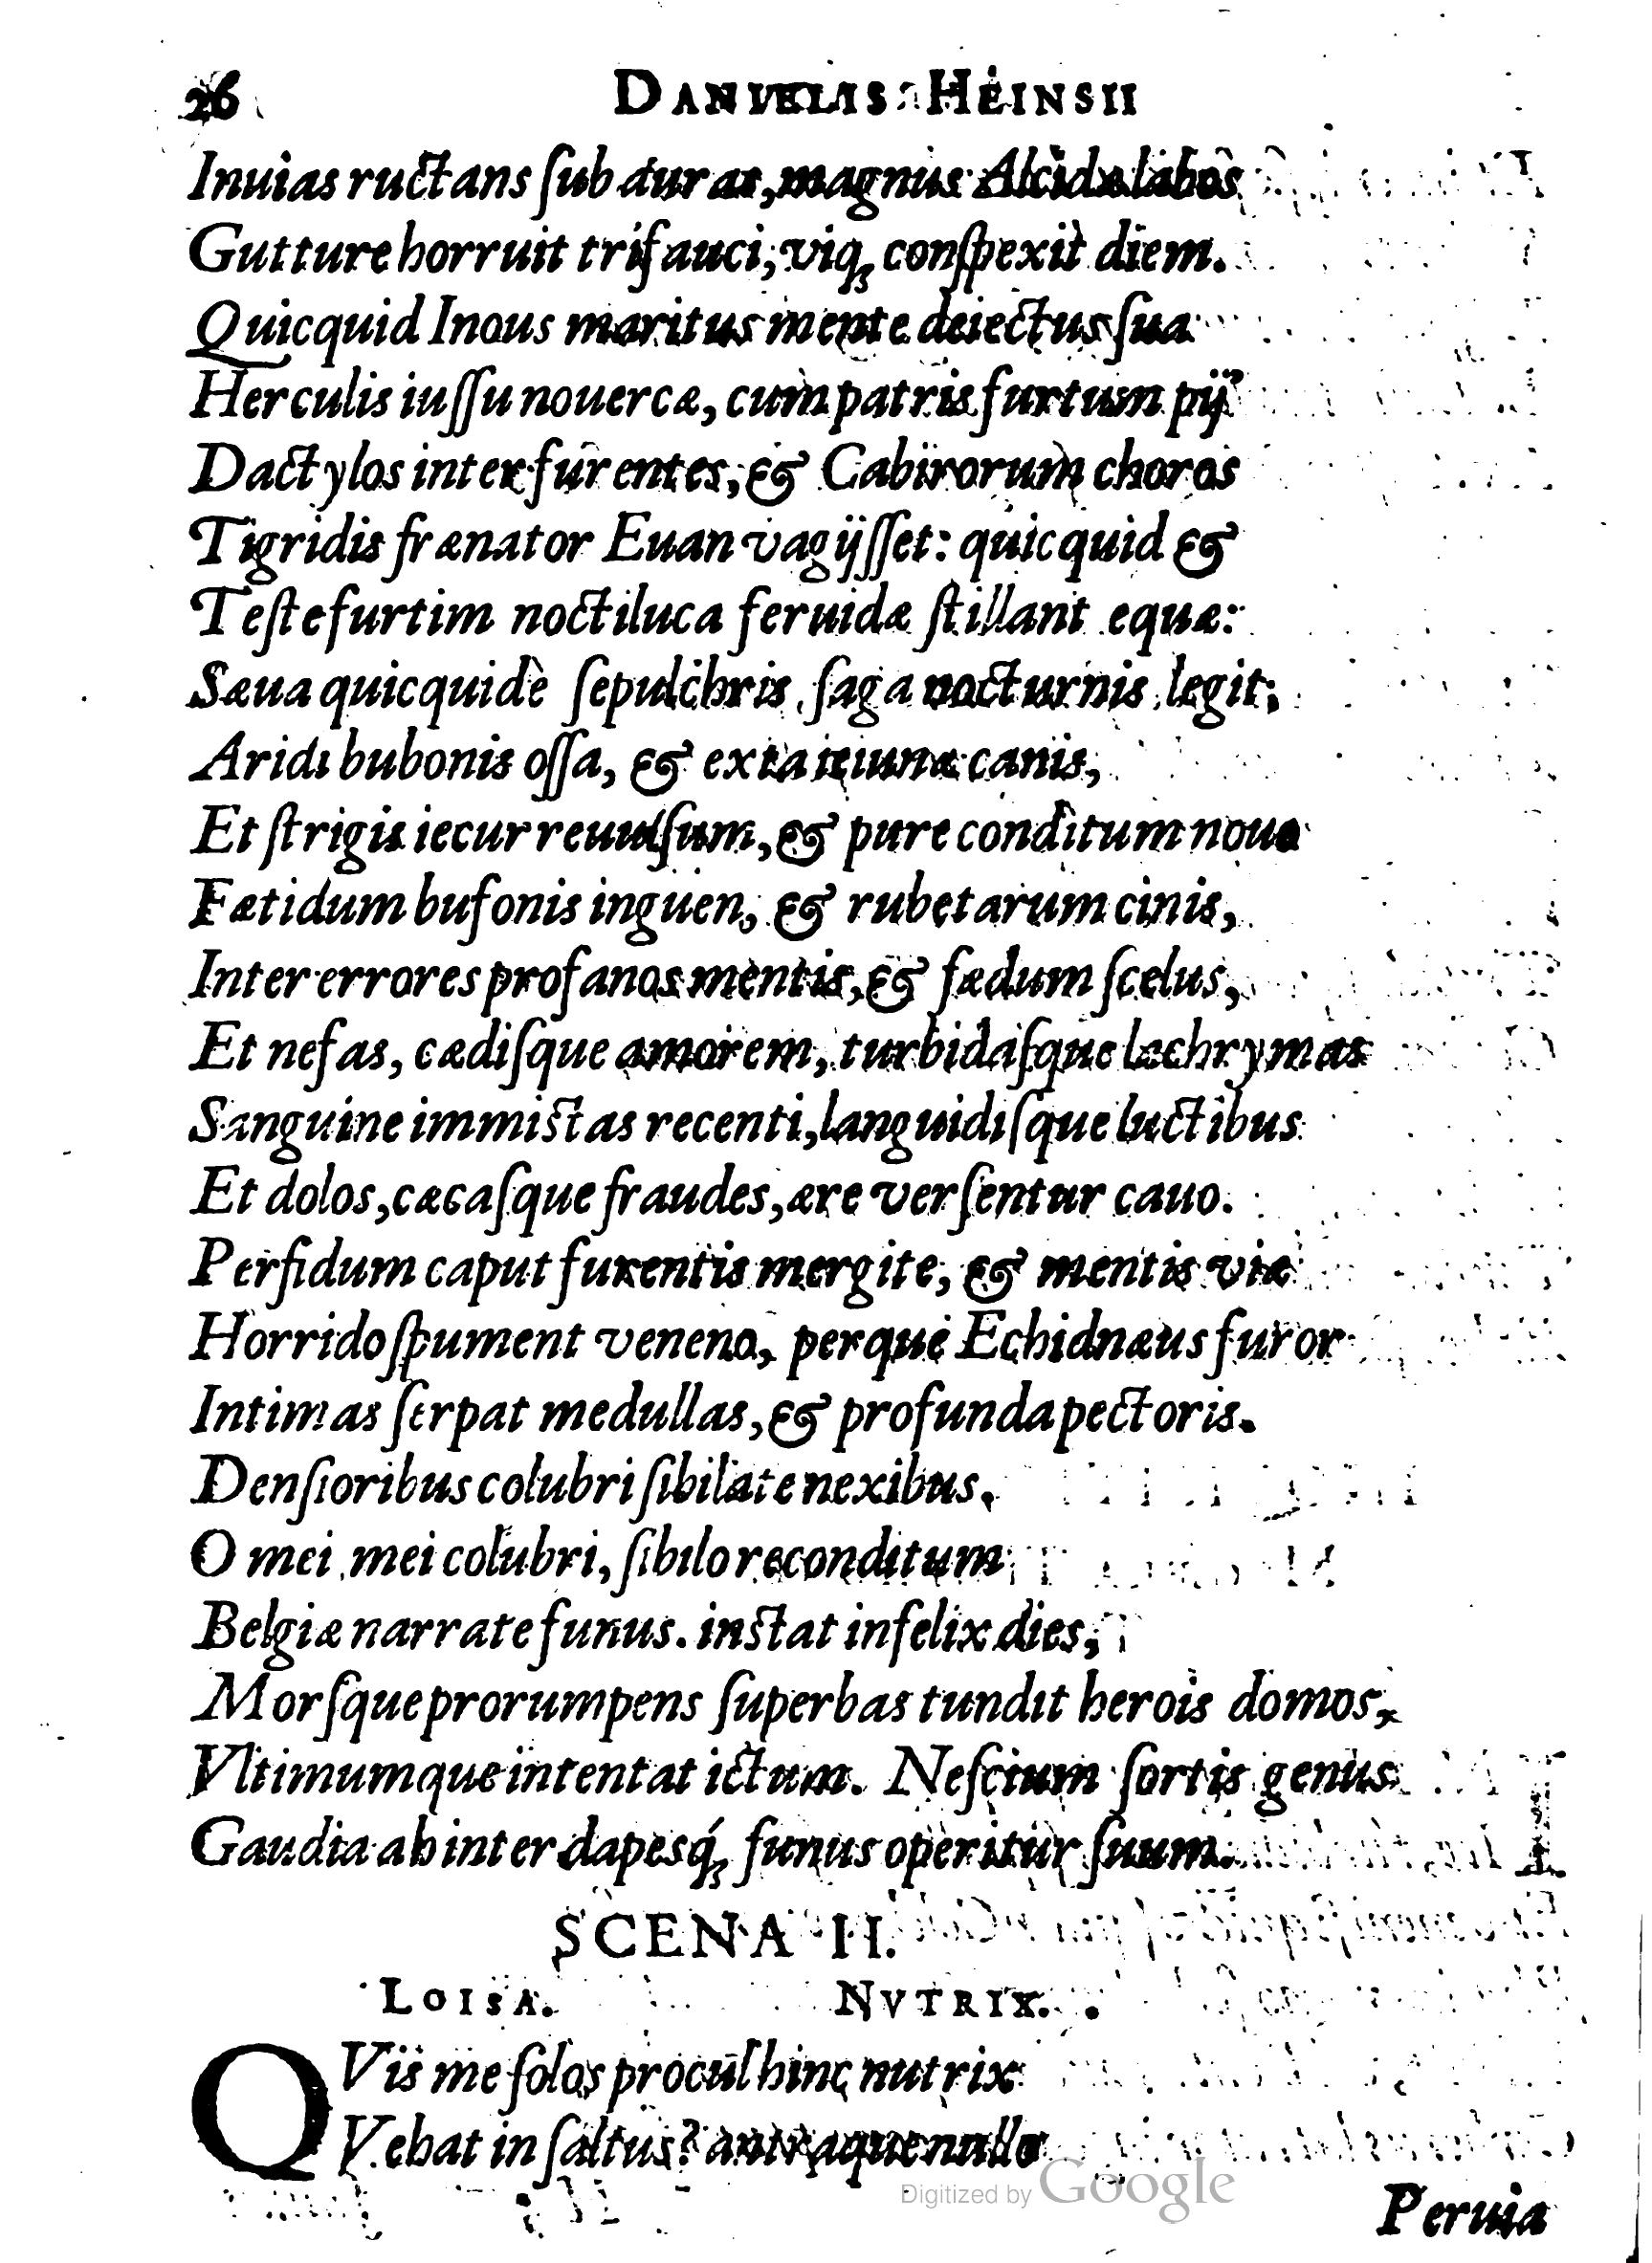 26 DANIELIS HEINSII
Inuias ructans ſub auras, magnus Alcidæ labos
Gutture horruit trifauci; viq; conſpexit diem.
Quicquid Inous maritus mente deiectus ſua
Herculis iuſſu nouercæ, cum patris furtum pij
Dactylos inter furentes, & Cabirorum choros
Tigridis frænator Euan vagijſſet: quicquid &
Teſte furtim noctiluca feruidæ ſtillant equæ:
Sæua quicquid è ſepulchris ſaga nocturnis legit;
Aridi bubonis oſſa, & exta ieiunæ canis,
Et ſtrigis iecur reuulſum, & pure conditum nouo
Fætidum bufonis inguen, & rubetarum cinis,
Inter errores profanos mentis, & fædum ſcelus,
Et nefas, cædiſque amorem, turbidaſque lachrymas
Sanguine immiſtas recenti, languidiſque luctibus
Et dolos, cæcaſque fraudes, ære verſentur cauo.
Perfidum caput furentis mergite, & mentis viæ
Horrido ſpument veneno, perque Echidnæus furor
Intimas ſerpat medullas, & profunda pectoris.
Denſioribus colubri ſibilate nexibus,
O mei mei colubri, ſibilo reconditum
Belgiæ narrate funus. inſtat infelix dies,
Morſque prorumpens ſuperbas tundit herois domos,
Vltimumque intentat ictum. Neſcium ſortis genus
Gaudia ah inter dapesq́; funus operitur ſuum.
SCENA II.
LOISA. NVTRIX.
QVis me ſolos procul hinc nutrix
Vehat in ſaltus? antraque nullo
Peruia
Digitized by Google